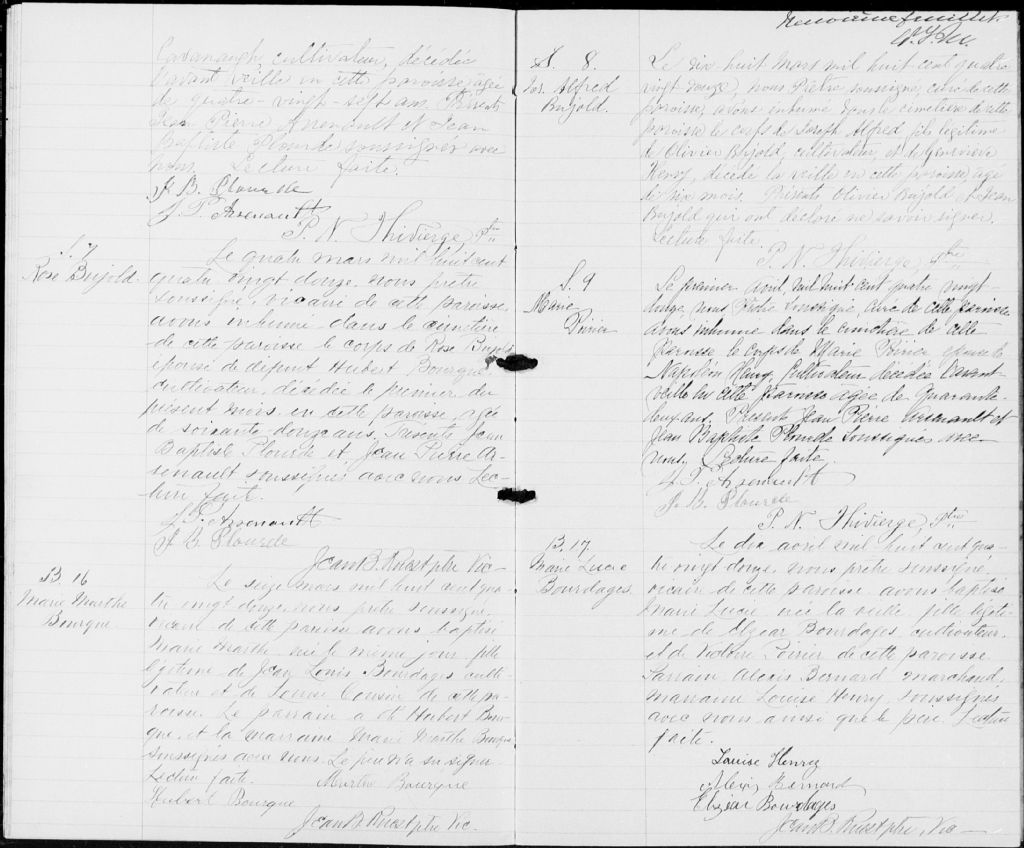 Cavanagh, cultivateur, décédée
l'avant veille en cette paroisse agée
de quatre-vingt-sept ans. Présents
Jean Pierre Arsenault et Jean
Baptiste Plourde soussignés avec
nous. Lecture faite.
J. B. Plourde
J. P. Arsenault
P. N. Thivierge, Ptre
S. 7
Rose Bujold.
Le quatre mars mil huit cent
quatre vingt douze, nous prêtre
soussigné, vicaire de cette paroisse
avons inhumé dans le cimetière
de cette paroisse le corps de Rose Bujold
épouse de défunt Hubert Bourgue
cultivateur, décédée le premier du
présent mois, en cette paroisse, agée
de soixante-douze ans. Présents Jean
Baptiste Plourde et Jean Pierre Ar-
senault soussignés avec nous. Lec-
ture faite.
J. P. Arsenault
J. B. Plourde
Jean B. Ruest ptre Vic-
B. 16
Marie Marthe
Bourque
Le seize mars mil huit cent qua-
tre vingt douze, nous prêtre soussigné,
vicaire de cette paroisse avons baptisé
Marie Marthe née le même jour fille
légitime de Jean Louis Bourdages culti-
vateur et de Louise Cousin de cette pa-
roisse. Le parrain a été Hubert Bour-
que, et la marraine Marie Marthe Bourque
soussignés avec nous. Le père n'a su signer.
Lecture faite. Martha Bourque
Hubert Bourque
Jean B. Ruest ptre Vic-
Neuvième feuillet.
S. 8.
Jos. Alfred
Bujold.
Le dix huit Mars mil huit cent quatre
vingt douze, nous Prêtre soussigné, curé de cette
paroisse, avons inhumé dans le cimetière de cette
paroisse le corps de Joseph Alfred, fils légitime
de Olivier Bujold, cultivateur, et de Geneviève
Henry, décédé la veille en cette paroisse, agé
de six mois. Présents Olivier Bujold et Jean
Bujold qui ont déclaré ne savoir signer.
Lecture faite.
P. N. Thivierge, Ptre
S. 9
Marie
Poirier
Le premier avril, mil huit cent quatre vingt-
douze, nous Prêtre soussigné Curé de cette paroisse
avons inhumé dans le cimetière de cette
paroisse le corps de Marie Poirier épouse de
Napoléon Henry, Cultivateur décédée l'avant
veille en cette paroisse agée de Quarante
deux ans. Présents Jean Pierre Arsenault et
Jean Baptiste Plourde Soussignés avec
nous. Lecture faite.
J. P. Arsenault
J. B. Plourde
P. N. Thivierge, Ptre
B. 17.
Marie Lucie
Bourdages.
Le dix avril mil-huit cent qua-
tre vingt douze, nous prêtre soussigné,
vicaire de cette paroisse avons baptisé
Marie Lucie née la veille, fille légiti-
me de Elzéar Bourdages, cultivateur,
et de Victoire Poirier de cette paroisse.
Parrain Alexis Bernard marchand,
marraine Louise Henry, soussignés
avec nous ainsi que le père. Lecture
faite.
Louise Henry
Alexis Bernard
Elzéar Bourdages
Jean B. Ruest ptre, Vic-